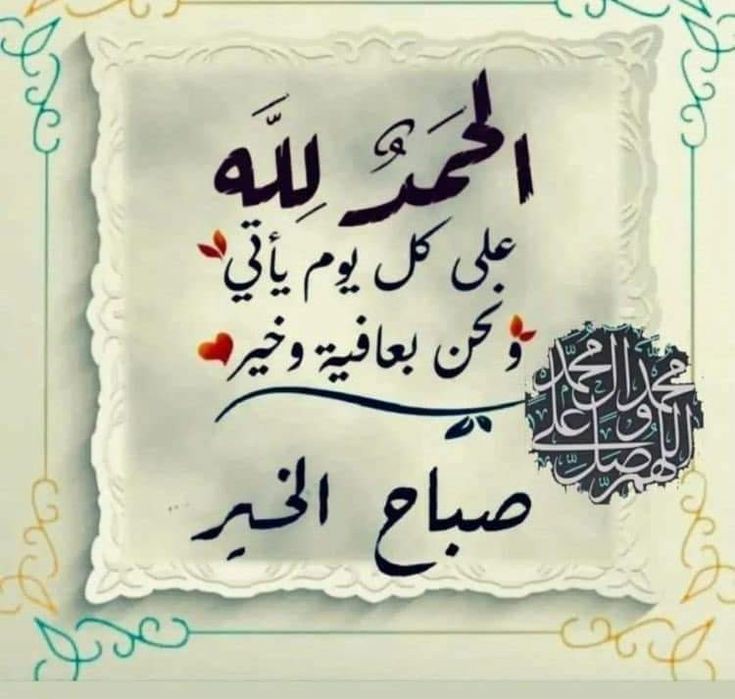 الحَمدُ لِلَّه
على كل يوم يأتي
ونحن بعافية وخير
صباح الخير
اللهم صل على محمد وال محمد